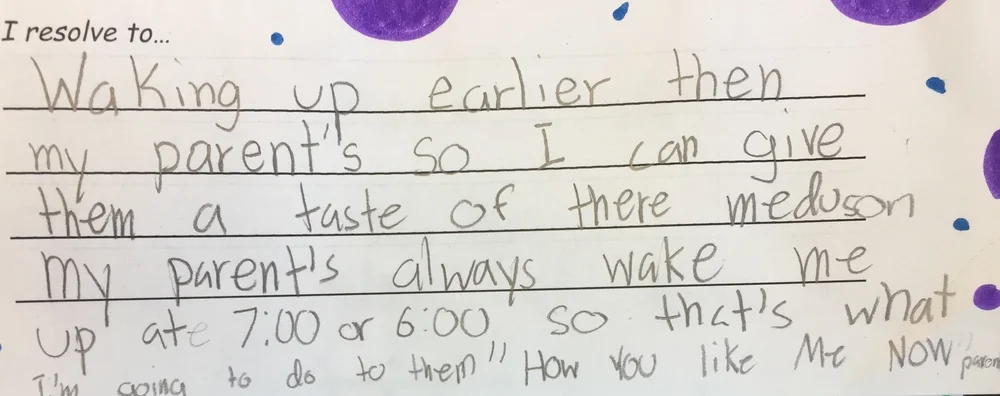 I resolve to...
Waking up earlier then
my parent's so I can give
them a taste of there meduson
my parent's always wake me
up ate 7:00 or 6:00 so that's what
I'm going to do to them" How You like Me NOW